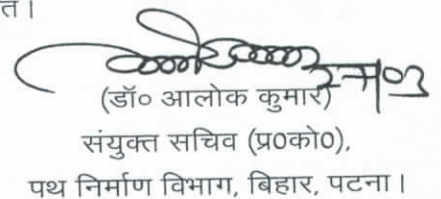 त।
(डॉ० आलोक कुमार)
संयुक्त सचिव (प्र०को०),
पथ निर्माण विभाग, बिहार, पटना।